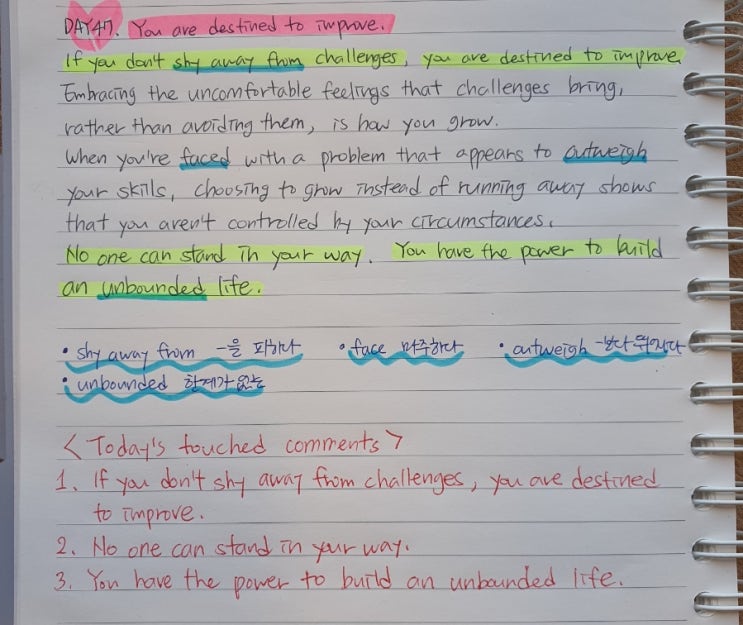 DAY47. You are destined to improve.
If you don't shy away from challenges, you are destined to improve.
Embracing the uncomfortable feelings that challenges bring,
rather than avoiding them, is how you grow.
When you're faced with a problem that appears to outweigh
your skills, choosing to grow instead of running away shows
that you aren't controlled by your circumstances.
No one can stand in your way. You have the power to build
an unbounded life.
• shy away from -을 피하다 • face 마주하다 • outweigh -보다 뛰어나다
• unbounded 한계가 없는
<Today's touched comments>
1. If you don't shy away from challenges, you are destined
to improve.
2. No one can stand in your way.
3. You have the power to build an unbounded life.